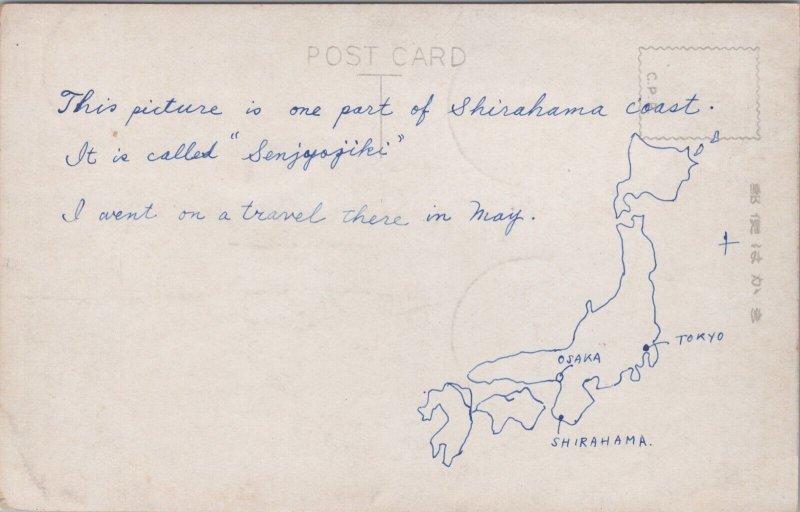 POST CARD
This picture is one part of Shirahama coast.
It is called "Senjyojiki"
I went on a travel there in May.
TOKYO
OSAKA
SHIRAHAMA.